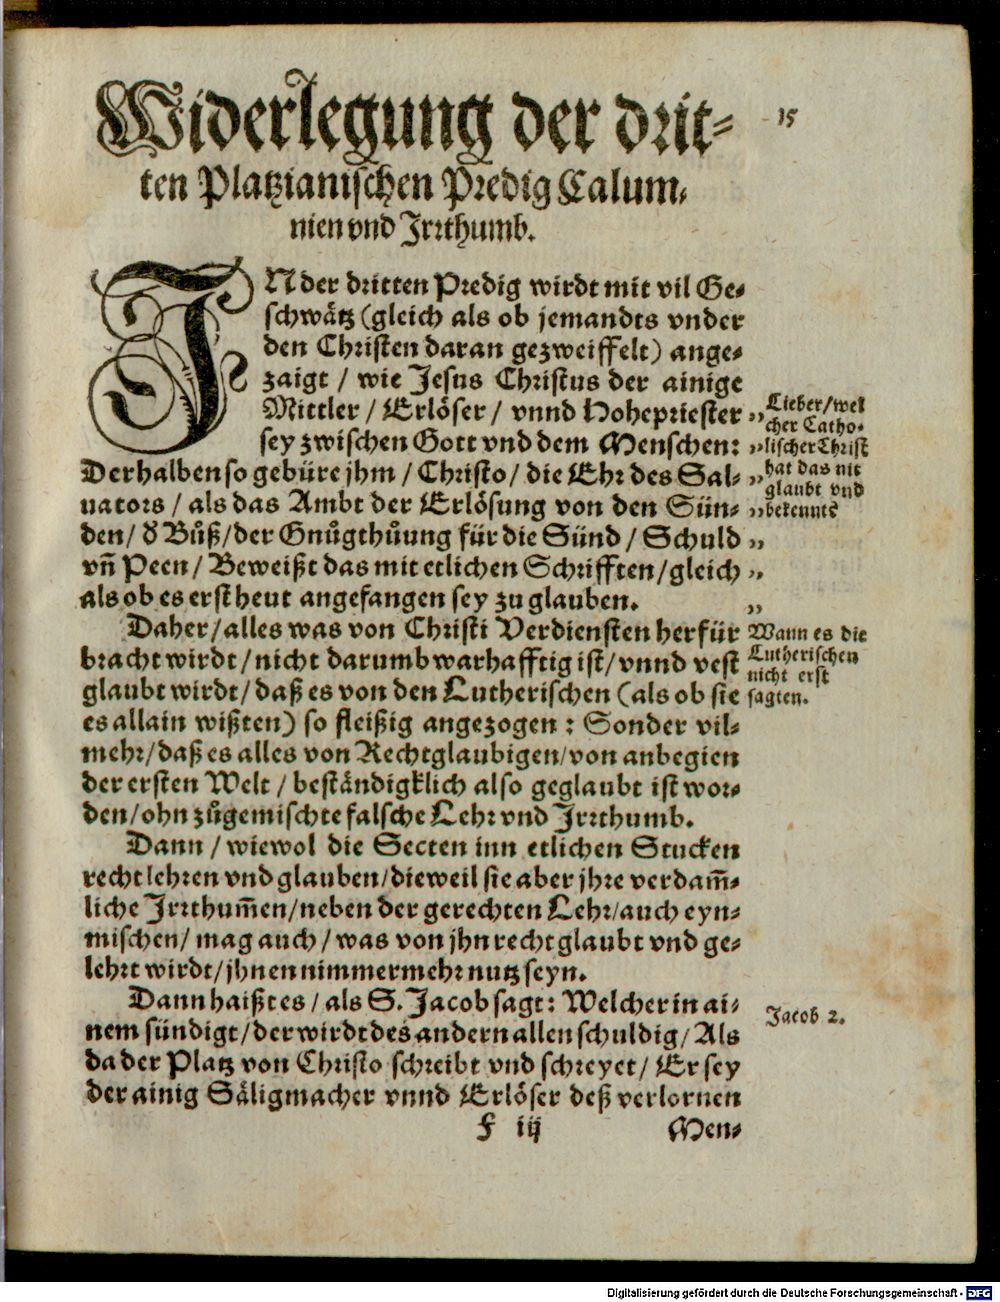 Widerlegung der drit⸗
15
ten Platzianischen Predig Calum⸗
nien vnd Irrthumb.
IN der dritten Predig wirdt mit vil Ge⸗
schwätz (gleich als ob jemandts vnder
den Christen daran gezweiffelt) ange⸗
zaigt / wie Jesus Christus der ainige
Mittler / Erlöser / vnnd Hohepriester
sey zwischen Gott vnd dem Menschen:
Derhalben so gebüre jhm / Christo / die Ehr des Sal⸗
uators / als das Ambt der Erlösung von den Sün⸗
den / d̕ Bůß / der Gnůgthůung für die Sünd / Schuld
vn̄ Peen / Beweißt das mit etlichen Schrifften / gleich
als ob es erst heut angefangen sey zu glauben.
„ Lieber / wel
cher Catho⸗
„ lischer Christ
hat das nit
„ glaubt vnd
„ bekennt?
„
„
„
Daher / alles was von Christi Verdiensten herfür
bracht wirdt / nicht darumb warhafftig ist / vnnd vest
glaubt wirdt / daß es von den Lutherischen (als ob sie
es allain wißten) so fleißig angezogen: Sonder vil⸗
mehr / daß es alles von Rechtglaubigen / von anbegien
der ersten Welt / beständigklich also geglaubt ist wor⸗
den / ohn zůgemischte falsche Lehr vnd Irrthumb.
Wann es die
Lutherischen
nicht erst
sagten.
Dann / wiewol die Secten inn etlichen Stucken
recht lehren vnd glauben / dieweil sie aber jhre verdam̄⸗
liche Irrthum̄en / neben der gerechten Lehr / auch eyn⸗
mischen / mag auch / was von jhn recht glaubt vnd ge⸗
lehrt wirdt / jhnen nimmermehr nutz seyn.
Dann haißt es / als S. Jacob sagt: Welcher in ai⸗
nem sündigt / der wirdt des andern allen schuldig / Als
da der Platz von Christo schreibt vnd schreyet / Er sey
der ainig Säligmacher vnnd Erlöser deß verlornen
Jacob 2.
F iij
Men⸗
Digitalisierung gefördert durch die Deutsche Forschungsgemeinschaft - DFG